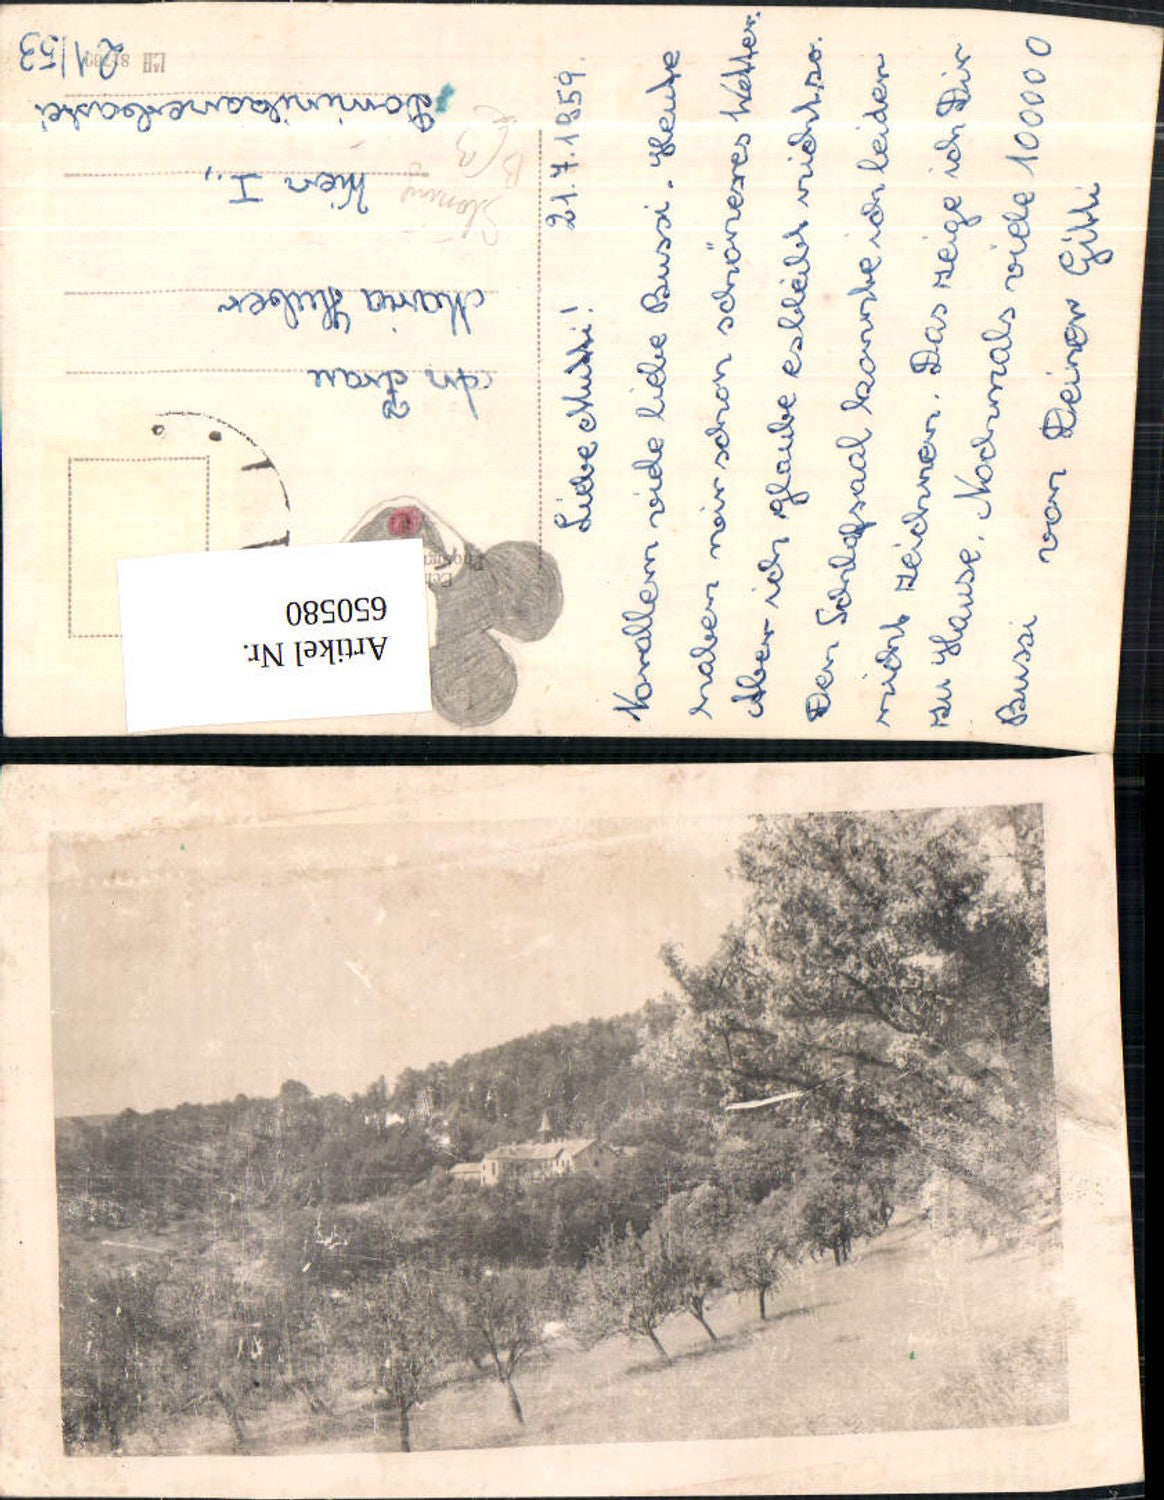 21.7.1959.
Liebe Mutti!
Vorallem viele liebe Bussi. Heute
haben wir schon schöneres Wetter.
Aber ich glaube es bleibt nicht so.
Den Schlafsaal konnte ich leider
nicht zeichnen. Das zeige ich Dir
zu Hause. Nochmals viele 100000
Bussi von Deiner Gitti
An Frau
Maria Huber
Wien I.,
Dominikanerbastei
21/53
Artikel Nr.
650580